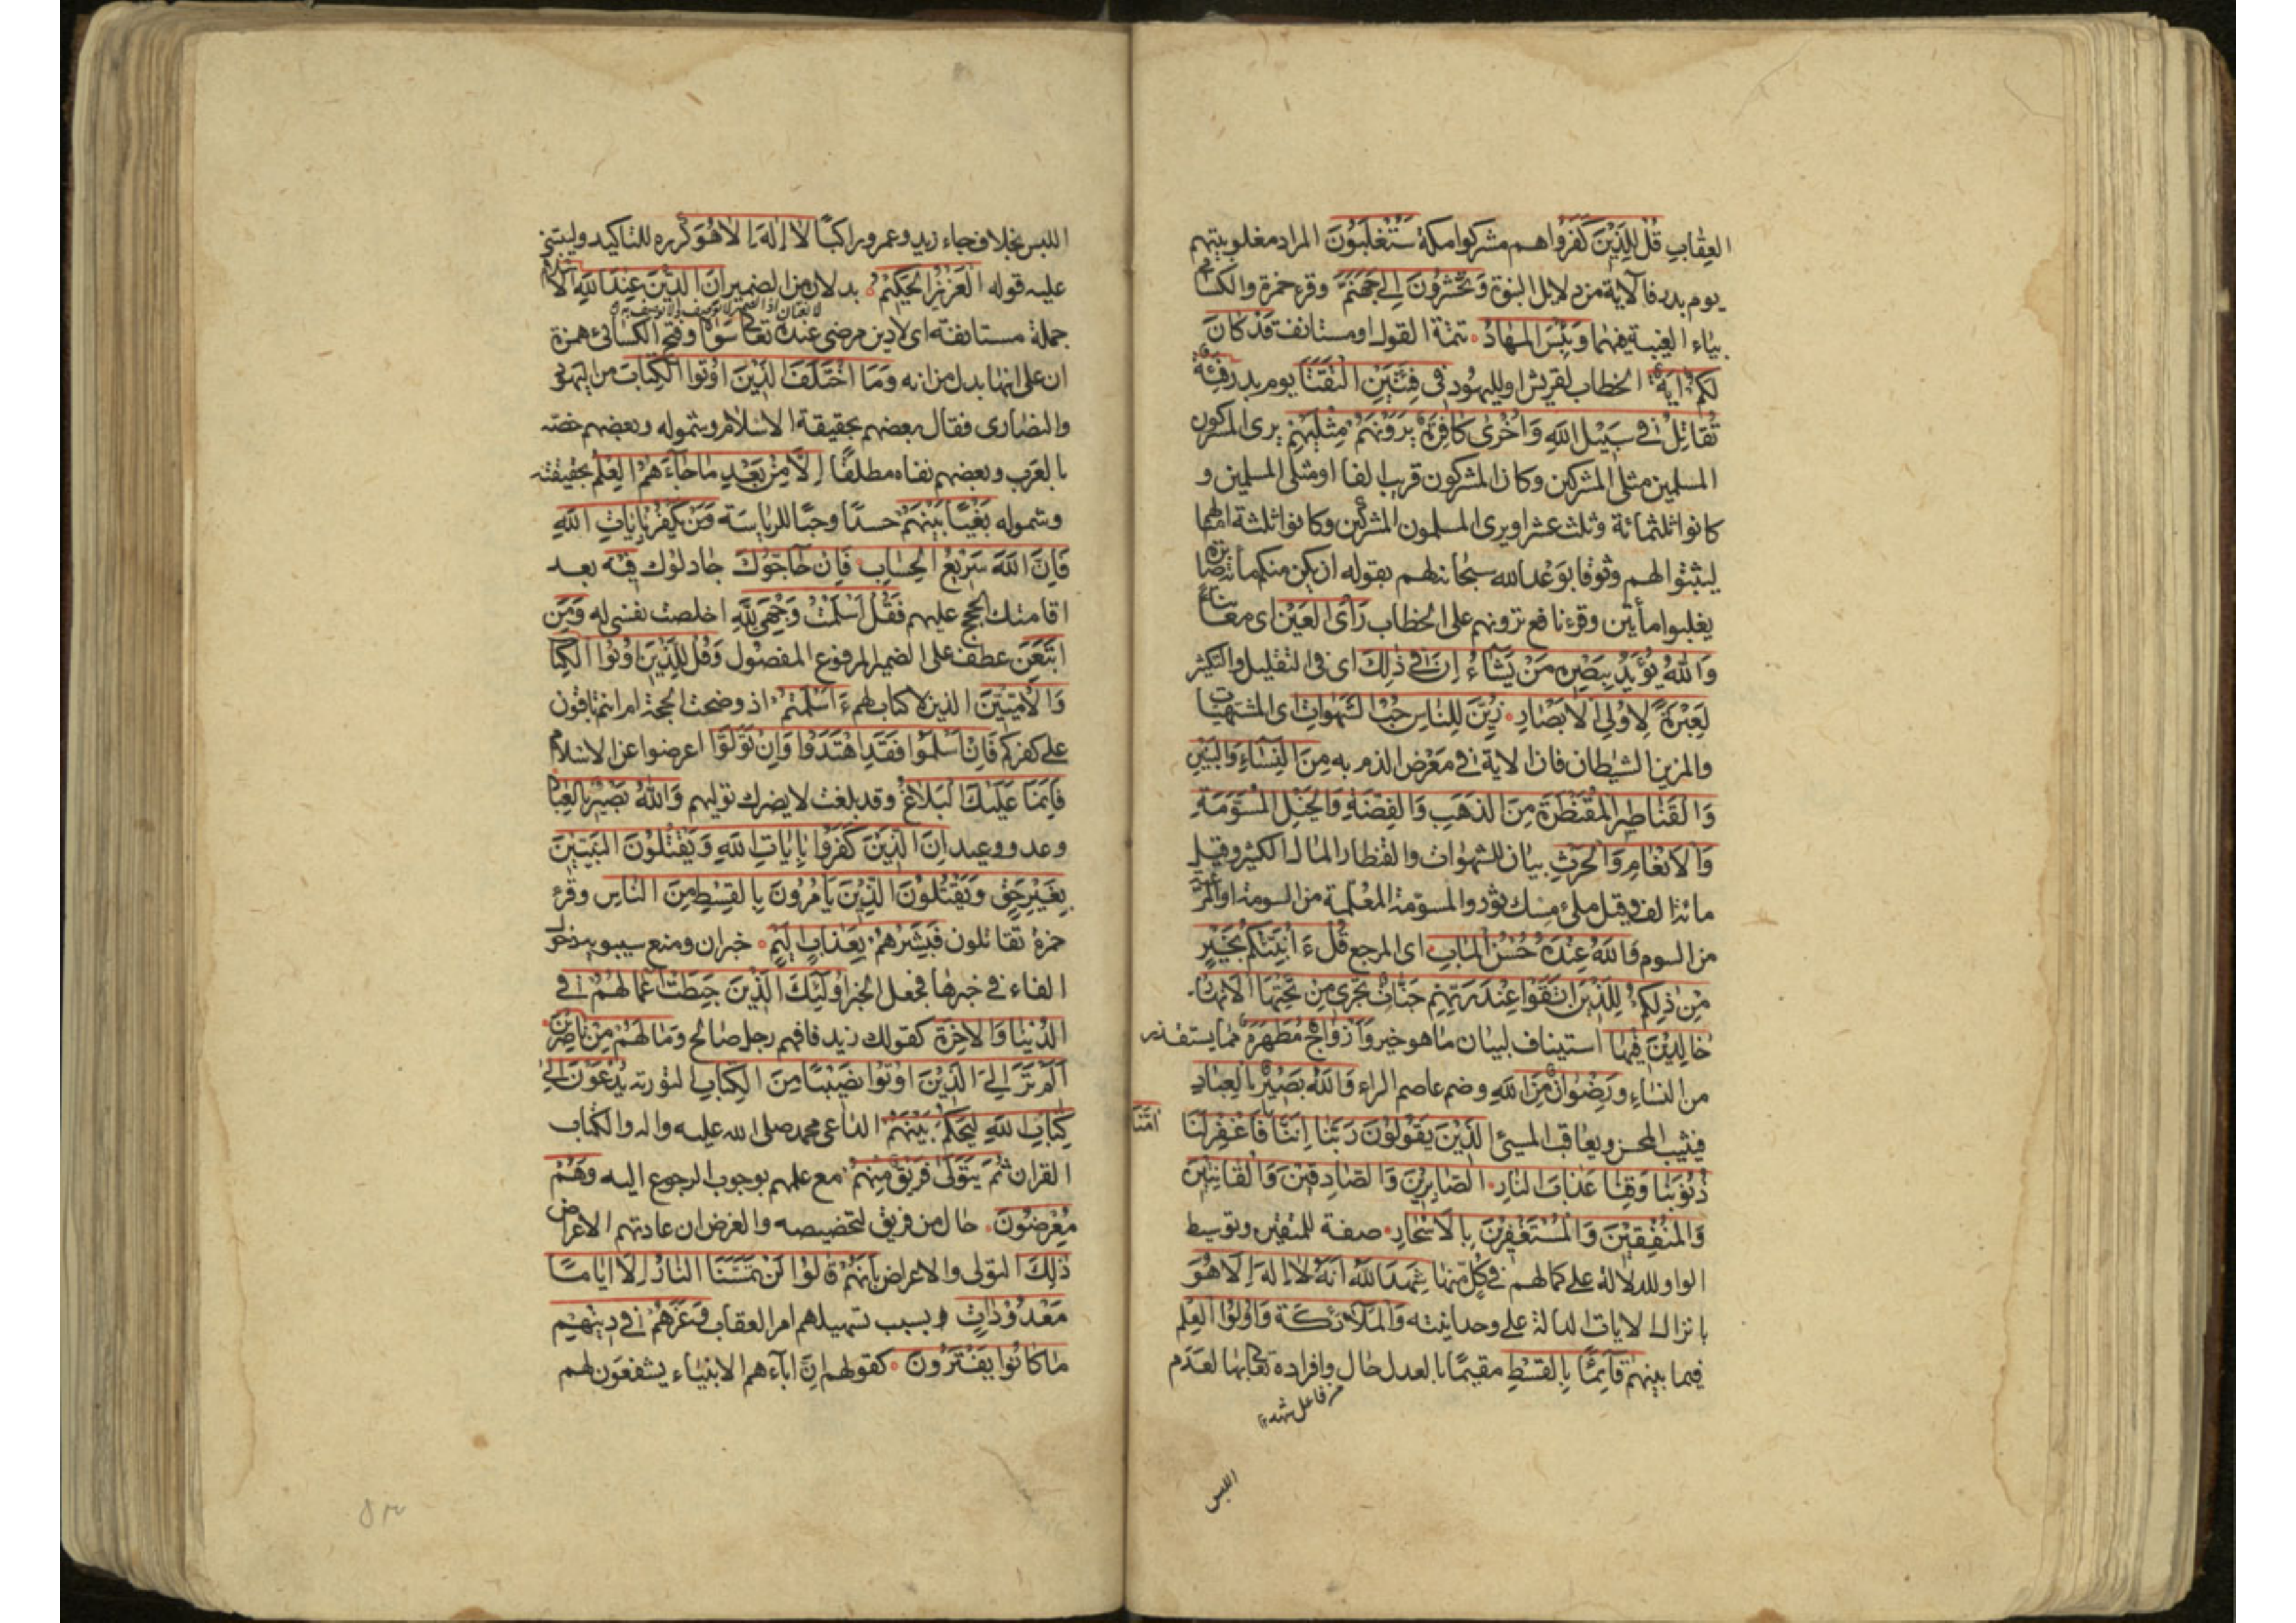 العِقٰابِ قُل لِلَّذِيْنَ كَفَرُوا هم مشركوا مكة سَتُغْلَبُوْنَ المراد مغلوبيتهم
يوم بدر فالآية من دلايل النبوة وَتُحْشَرُوْنَ اِلىٰ جَهَنَّمَ وقرء حمزة والكسائى
بياء الغيبة فيهما وَبِئْسَ المِهٰادُ تتمة القول او مستانفة قَدْ كٰانَ
لَكُمْ اٰيَةٌ الخطاب لقريش او لليهود فى فِئَتَيْنِ الْتَقَتٰا يوم بدر فِئَةٌ
تُقٰاتِلُ فى سَبِيْلِ اللّٰهِ وَاُخْرىٰ كٰافِرَةٌ يَرَوْنَهُمْ مِثْلَيْهِمْ يرى المشركون
المسلمين مثلى المشركين وكان المشركون قريب الف او مثلى المسلمين و
كانوا ثلثمائة وثلث عشر او يرى المسلمون المشركين وكانوا ثلثة امثالهم
ليثبتوا لهم وثوقا بوعد الله سبحانه لهم بقوله ان يكن منكم مأة صابرة
يغلبوا مأتين وقرء نافع ترونهم على الخطاب رَأْىَ العَيْنِ اى معاينة
وَاللّٰهُ يُؤَيِّدُ بِنَصْرِهِ مَنْ يَشٰاءُ اِنَّ فى ذٰلِكَ اى فى التقليل والتكثير
لَعِبْرَةً لِاُولِى الْاَبْصٰارِ زُيِّنَ لِلنّٰاسِ حُبُّ الشَهَوٰاتِ اى المشتهيات
والمزين الشيطان فان الاية فى مَعْرَض الذم به مِنَ النِّسٰاءِ وَالبَنِيْنَ
وَالقَنٰاطِيْرِ المُقَنْطَرَةِ مِنَ الذَهَبِ وَالفِضَّةِ وَالخَيْلِ المُسَوَّمَةِ
وَالاَنْعٰامِ وَالحَرْثِ بيان للشهوات والقنطار المال الكثير وقيل
مائة الف وقيل ملئ مسك ثور والمسوّمة المُعْلَمة من السومة او المرعية
من السوم وَاللّٰهُ عِنْدَهُ حُسْنُ المَاٰبِ اى المرجع قُلْ ءَاُنَبِّئُكُمْ بِخَيْرٍ
مِنْ ذٰلِكُمْ لِلَّذِيْنَ اتَّقَوْا عِنْدَ رَبِّهِمْ جَنّٰاتٌ تَجْرِى مِنْ تَحْتِهَا الاَنْهٰارُ
خٰالِدِيْنَ فِيْهٰا استيناف لبيان ما هو خير وَاَزْوٰاجٌ مُطَهَّرَةٌ مما يستقذر
من النساء وَرِضْوٰانٌ مِنَ اللّٰهِ وضم عاصم الراء وَاللّٰهُ بَصِيْرٌ بِالعِبٰادِ
فيثيب المحسن ويعاقب المسيئ الَّذِيْنَ يَقُوْلُوْنَ رَبَّنٰا اِنَّنٰا فَاغْفِرْ لَنٰا
اٰمَنّٰا
ذُنُوْبَنٰا وَقِنٰا عَذٰابَ النّٰارِ الصّٰابِرِيْنَ وَالصّٰادِقِيْنَ وَالقٰانِتِيْنَ
وَالمُنْفِقِيْنَ وَالمُسْتَغْفِرِيْنَ بِالاَسْحٰارِ صفة للمتقين وتوسيط
الواو للدلالة على كمالهم فى كل منها شَهِدَ اللّٰهُ اَنَّهُ لاٰ اِلٰهَ اِلاّٰ هُوَ
بانزال الايات الدالة على وحدانيته وَالمَلاٰئكَةُ وَاُولُوا العِلْم
فيما بينهم قٰائِمًا بِالقِسْطِ مقيمًا بالعدل حال وافراده تعالى بها لعدم
من فاعل شهد
اللبس
اللبس بخلاف جاء زيد وعمرو راكبًا لاٰ اِلٰهَ اِلاّٰ هُوَ كرره للتاكيد وليبتنى
عليه قوله العَزِيْزُ الحَكِيْمُ بدلان من الضمير اِنَّ الدِّيْنَ عِنْدَ اللّٰهِ الاِسْلاٰمُ
جملة مستانفة اى لا دين مرضى عنده تعالى سواه وفتح الكسائى همزة
ان على انها بدل من انه وَمٰا اخْتَلَفَ الَّذِيْنَ اُوْتُوا الكِتٰابَ من اليهود
والنصارى فقال بعضهم بحقيقة الاسلام وشموله وبعضهم خصّه
بالعرب وبعضهم نفاه مطلقًا اِلاّٰ مِنْ بَعْدِ مٰا جٰاءَهُمُ العِلْمُ بحقيقته
وشموله بَغْيًا بَيْنَهُمْ حسدًا وحبًّا للرياسة وَمَنْ يَكْفُرْ بِاٰيٰاتِ اللّٰهِ
فَاِنَّ اللّٰهَ سَرِيْعُ الحِسٰابِ فَاِنْ حٰاجُّوْكَ جادلوك فيه بعد
اقامتك الحجج عليهم فَقُلْ اَسْلَمْتُ وَجْهِىَ لِلّٰهِ اخلصت نفسى له وَمَنِ
اتَّبَعَنِ عطف على الضمير المرفوع المفصول وَقُلْ لِلَّذِيْنَ اُوْتُوا الكِتٰابَ
وَالاُمِّيِّيْنَ الذين لا كتاب لهم ءَاَسْلَمْتُمْ اذ وضحت الحجة ام انتم باقون
على كفركم فَاِنْ اَسْلَمُوْا فَقَدِ اهْتَدَوْا وَاِنْ تَوَلَّوْا اعرضوا عن الاسلام
فَاِنَّمٰا عَلَيْكَ البَلاٰغُ وقد بلغت لا يضرك توليهم وَاللّٰهُ بَصِيْرٌ بِالعِبٰادِ
وعد ووعيد اِنَّ الَّذِيْنَ كَفَرُوا بِاٰيٰاتِ اللّٰهِ وَيَقْتُلُوْنَ النَبِيِّيْنَ
بِغَيْرِ حَقٍّ وَيَقْتُلُوْنَ الَّذِيْنَ يَاْمُرُوْنَ بِالقِسْطِ مِنَ النّٰاسِ وقرء
حمزة تقاتلون فَبَشِّرْهُمْ بِعَذٰابٍ اَلِيْمٍ خبر ان ومنع سيبويه دخول
الفاء فى خبرها فجعل الخبر اُولٰئِكَ الَّذِيْنَ حَبِطَتْ اَعْمٰالُهُمْ فى
الدُّنْيٰا وَالاٰخِرَةِ كقولك زيد فافهم رجل صالح وَمٰا لَهُمْ مِنْ نٰاصِرِيْنَ
اَلَمْ تَرَ اِلىٰ الَّذِيْنَ اُوْتُوا نَصِيْبًا مِنَ الكِتٰابِ التورية يُدْعَوْنَ اِلىٰ
كِتٰابِ اللّٰهِ لِيَحْكُمَ بَيْنَهُمْ الداعى محمد صلى الله عليه واله والكتاب
القران ثُمَّ يَتَوَلّىٰ فَرِيْقٌ مِنْهُمْ مع علمهم بوجوب الرجوع اليه وَهُمْ
مُعْرِضُوْنَ حال من فريق لتخصيصه والغرض ان عادتهم الاعراض
ذٰلِكَ التولى والاعراض بِاَنَّهُمْ قٰالُوْا لَنْ تَمَسَّنَا النّٰارُ اِلاّٰ اَيّٰامًا
مَعْدُوْدٰاتٍ بسبب تسهيلهم امر العقاب وَغَرَّهُمْ فى دِيْنِهِمْ
مٰا كٰانُوا يَفْتَرُوْنَ كقولهم انّ اباءهم الانبياء يشفعون لهم